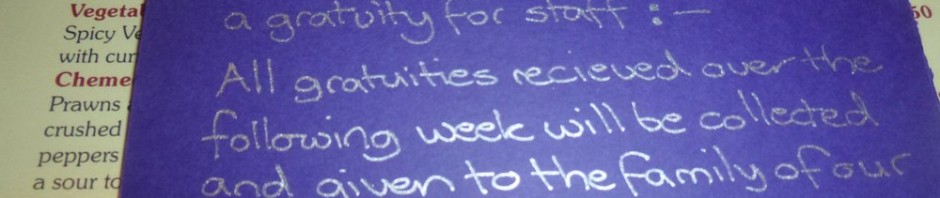 Spicy
with
Prawns
crushed
peppers
a sour
50
a gratuity for staff :-
All gratuities recieved over the
following week will be collected
and given to the family of our